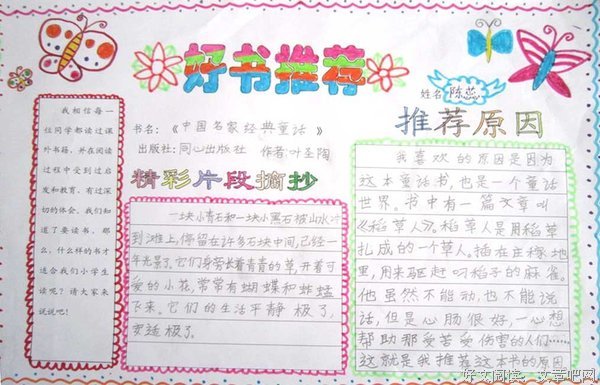 好书推荐
姓名：陈蕊
我相信每一
位同学都读过课
外书籍，并在阅读
过程中受到过启
发和教育，有过深
切的体会。我们知
道了要读书，那
么，什么样的书才
适合我们小学生
读呢？请大家来
说说吧！
书名：《中国名家经典童话》
出版社：同心出版社 作者：叶圣陶
精彩片段摘抄
一块小青石和一块小黑石被山水冲
到滩上，停留在许多石块中间，已经一
年光景了。它们身旁长着青青的草，开着可
爱的小花，常常有蝴蝶和蜻蜓
飞来。它们的生活平静极了，
安适极了。
推荐原因
我喜欢的原因是因为
这本童话书，也是一个童话
世界。书中有一篇文章叫
《稻草人》。稻草人是用稻草
扎成的一个草人。插在庄稼地
里，用来驱赶叼稻子的麻雀。
他虽然不能动，也不能说
话，但是心肠很好，一心想
帮助那受苦受伤害的人们……
这就是我推荐这本书的原因
好文阅读－文章吧网